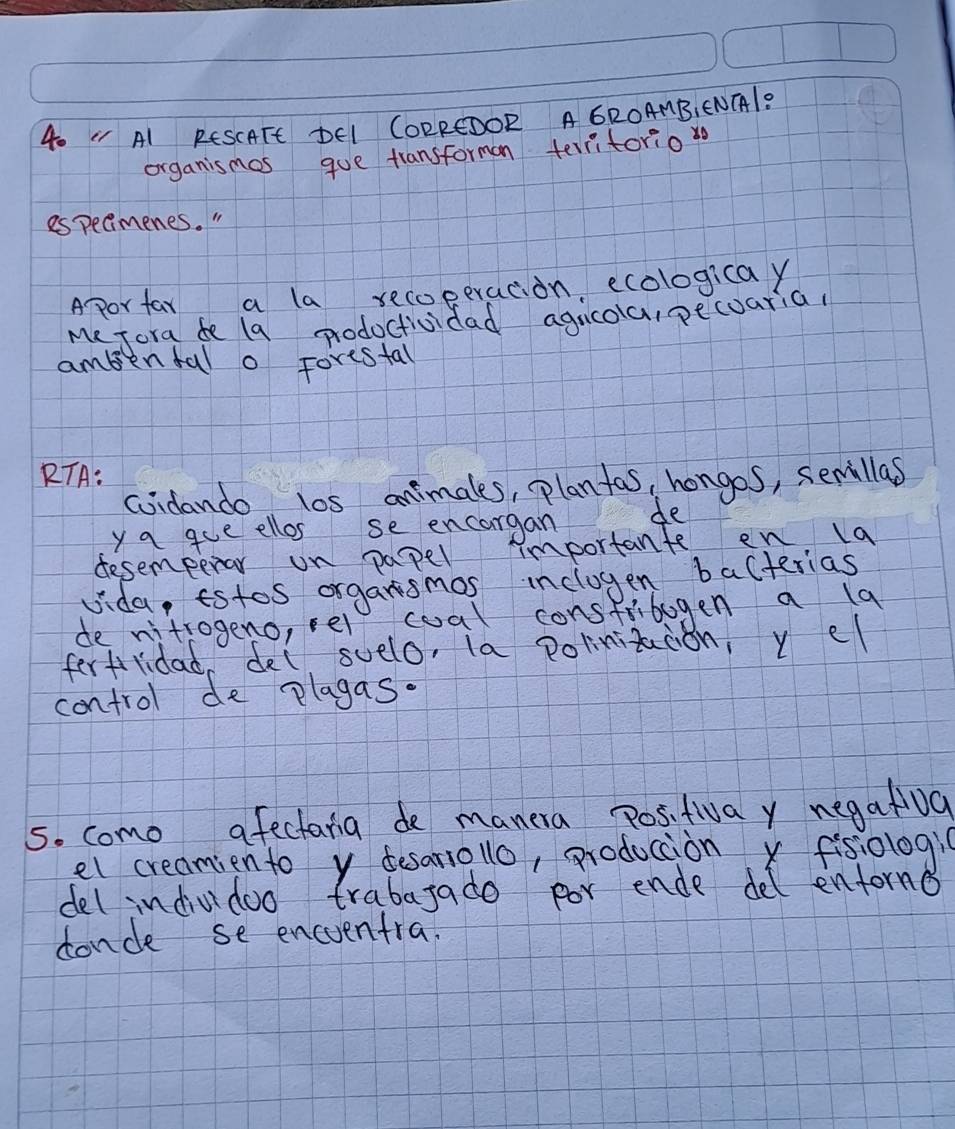 4. " Al RESCATE DEl CORREDOR AGROAMBIENTAl:
organismos que transforman territorio"
especimenes."
Aportar a la recoperación, ecologica y
Mejora de la productividad agricola, pecuaria,
ambiental o Forestal
RTA:
Cuidando los animales, plantas, hongos, semillas
ya que ellos se encargan de
desempeñar un papel importante en la
vida, estos organismos inclugen bacterias
de nitrogeno, el cual constribugen a la
fertilidad, del suelo, la polinización, y el
control de plagas.
5. como afectaria de manera positiva y negativa
el creamiento y desarrollo, producción y fisiologic
del individuo trabajado por ende del entorno
donde se encuentra.